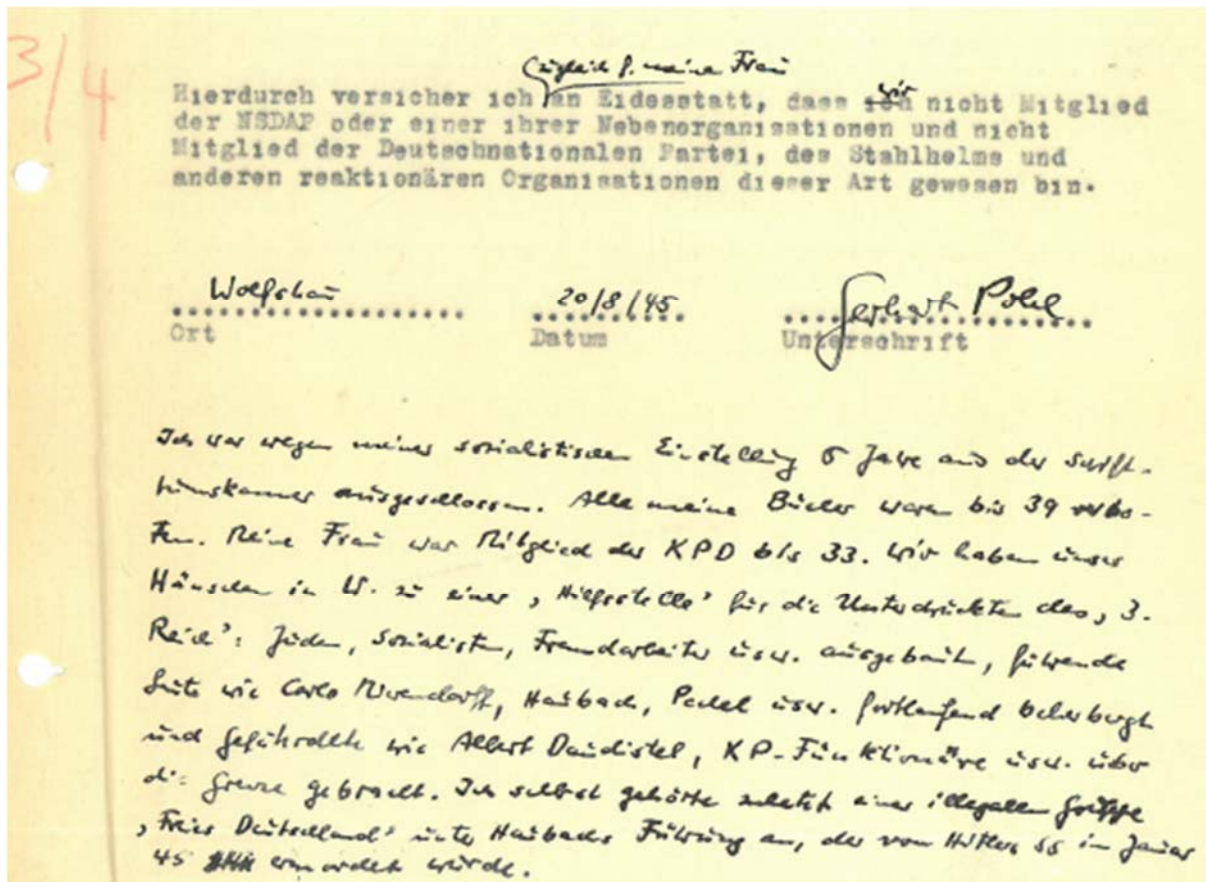 3/4
(zugleich f. meine Frau
Hierdurch versicher ich an Eidesstatt, dass ich wir nicht Mitglied
der NSDAP oder einer ihrer Nebenorganisationen und nicht
Mitglied der Deutschnationalen Partei, des Stahlhelms und
anderen reaktionären Organisationen dieser Art gewesen bin.
Wolfshau 20/8/45 Gerhart Pohl
Ort Datum Unterschrift
Ich war wegen meiner sozialistischen Einstellung 6 Jahre aus der Schrift-
tumskammer ausgeschlossen. Alle meine Bücher waren bis 39 verbo-
ten. Meine Frau war Mitglied der KPD bis 33. Wir haben unser
Häuschen in W. zu einer ‚Hilfsstelle' für die Unterdrückten des ‚3.
Reich': Juden, Sozialisten, Fremdarbeiter usw. ausgebaut, führende
Leute wie Carlo Mierendorff, Haubach, Pechel usw. fortlaufend beherbergt
und Gefährdete wie Albert Daudistel, KP-Funktionäre usw. über
die Grenze gebracht. Ich selbst gehörte zuletzt einer illegalen Gruppe
‚Freies Deutschland' unter Haubachs Führung an, der von Hitlers SS im Januar
45 ermordet wurde.